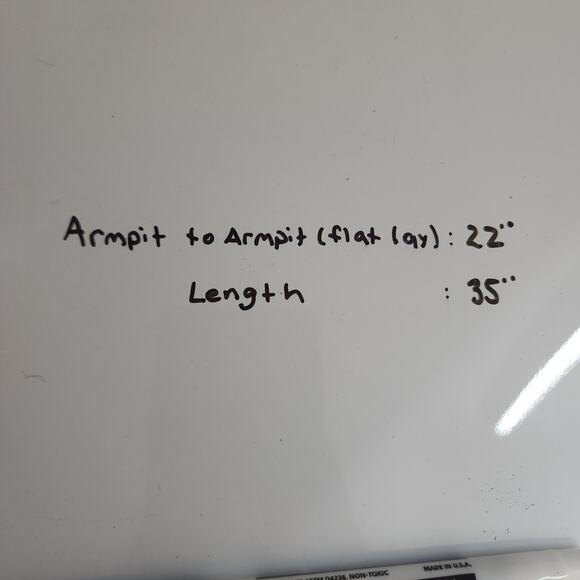 Armpit to Armpit (flat lay) : 22"
Length : 35"
ASTM D4236. NON-TOXIC MADE IN U.S.A.